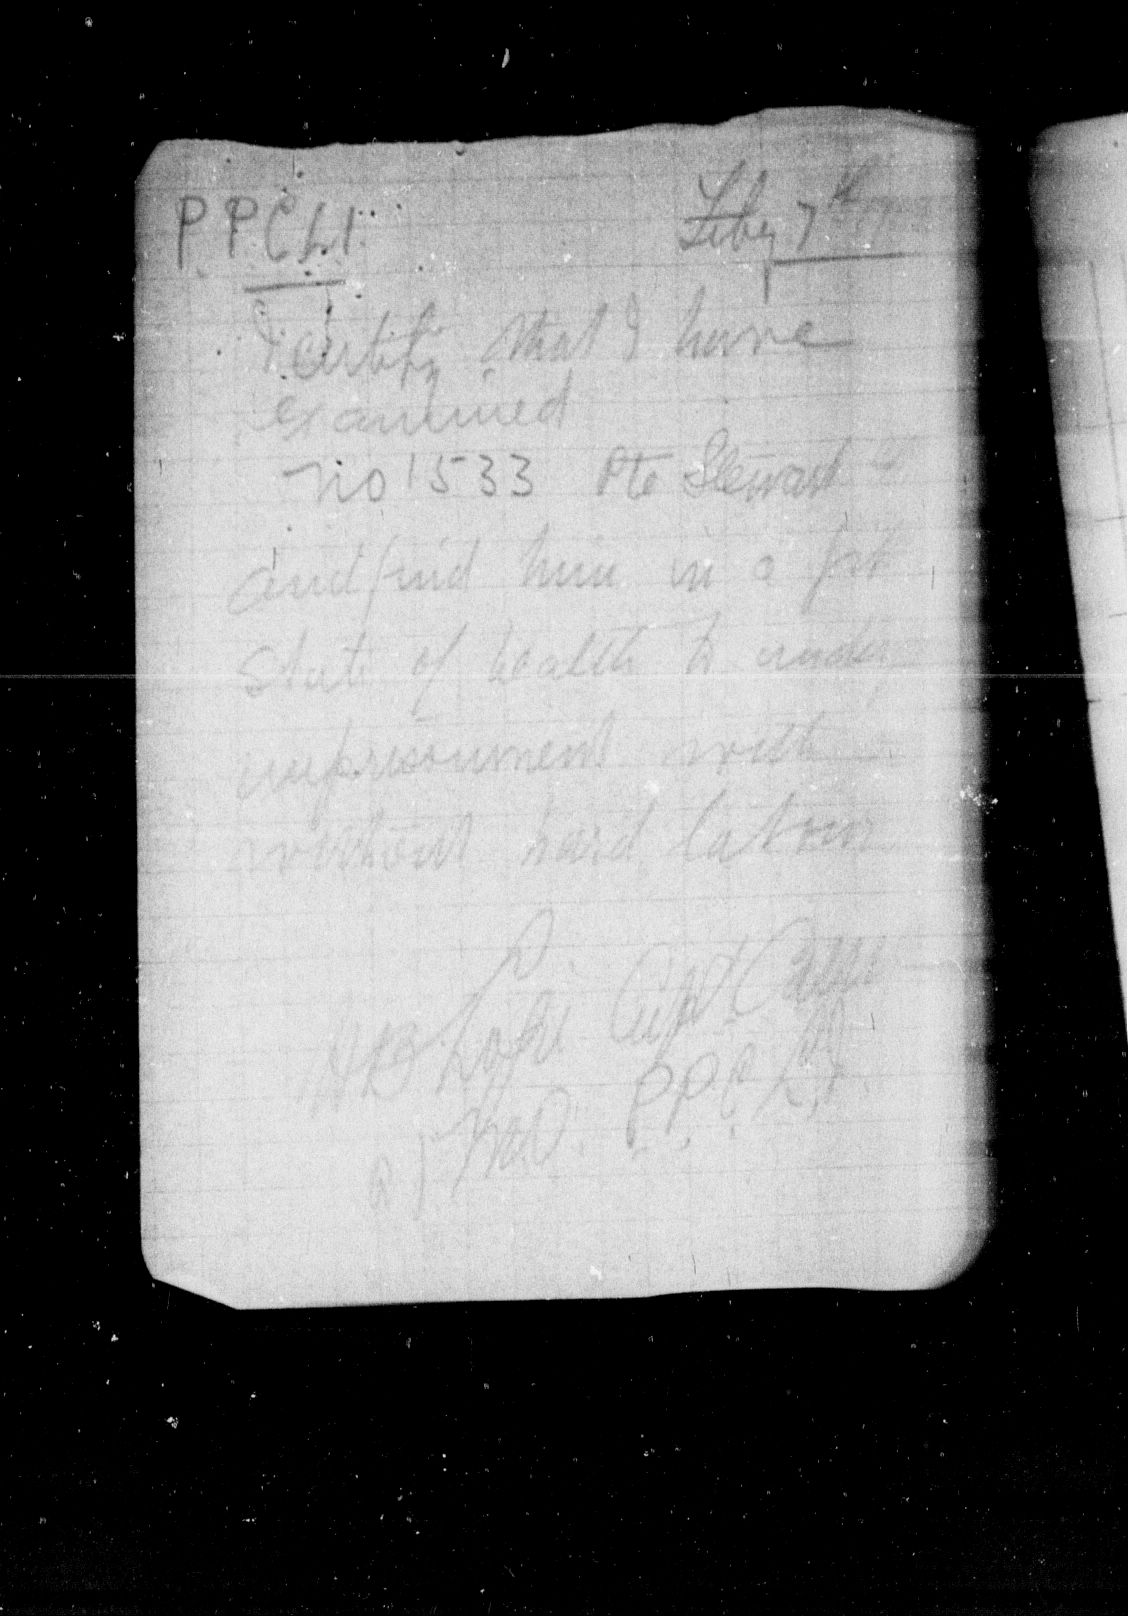 P.P.C.L.I.
Feby 7th
I certify that I have
examined
No 1533 Pte Stewart
and find him in a fit
state of health to undergo
imprisonment with
without hard labour
Capt
P.P.C.L.I.